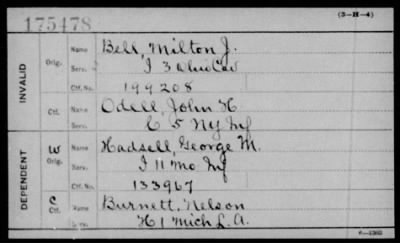 175478
(3-H-4)
INVALID
Orig. Name Bell, Milton J.
Serv. I 3 Ohio Cav
Ctf. No. 199208
Ctf. Name Odell, John H
Serv. C 5 NY Inf
DEPENDENT
W Orig. Name Hadsell, George M.
Serv. I 11 Mo Inf
Ctf. No. 133967
C Ctf. Name Burnett, Nelson
Serv. H 1 Mich L. A.